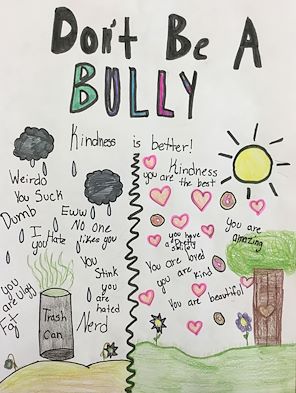 Don't Be A
BULLY
Kindness is better!
Weirdo
You Suck
Dumb
Eww
I Hate
you
No one
likes you
You
Stink
you
are ugly
you
are
hated
Fat
Trash
Can
Nerd
Kindness
you are the best
you have
a
You are
amazing
You are loved
you are kind
You are beautiful